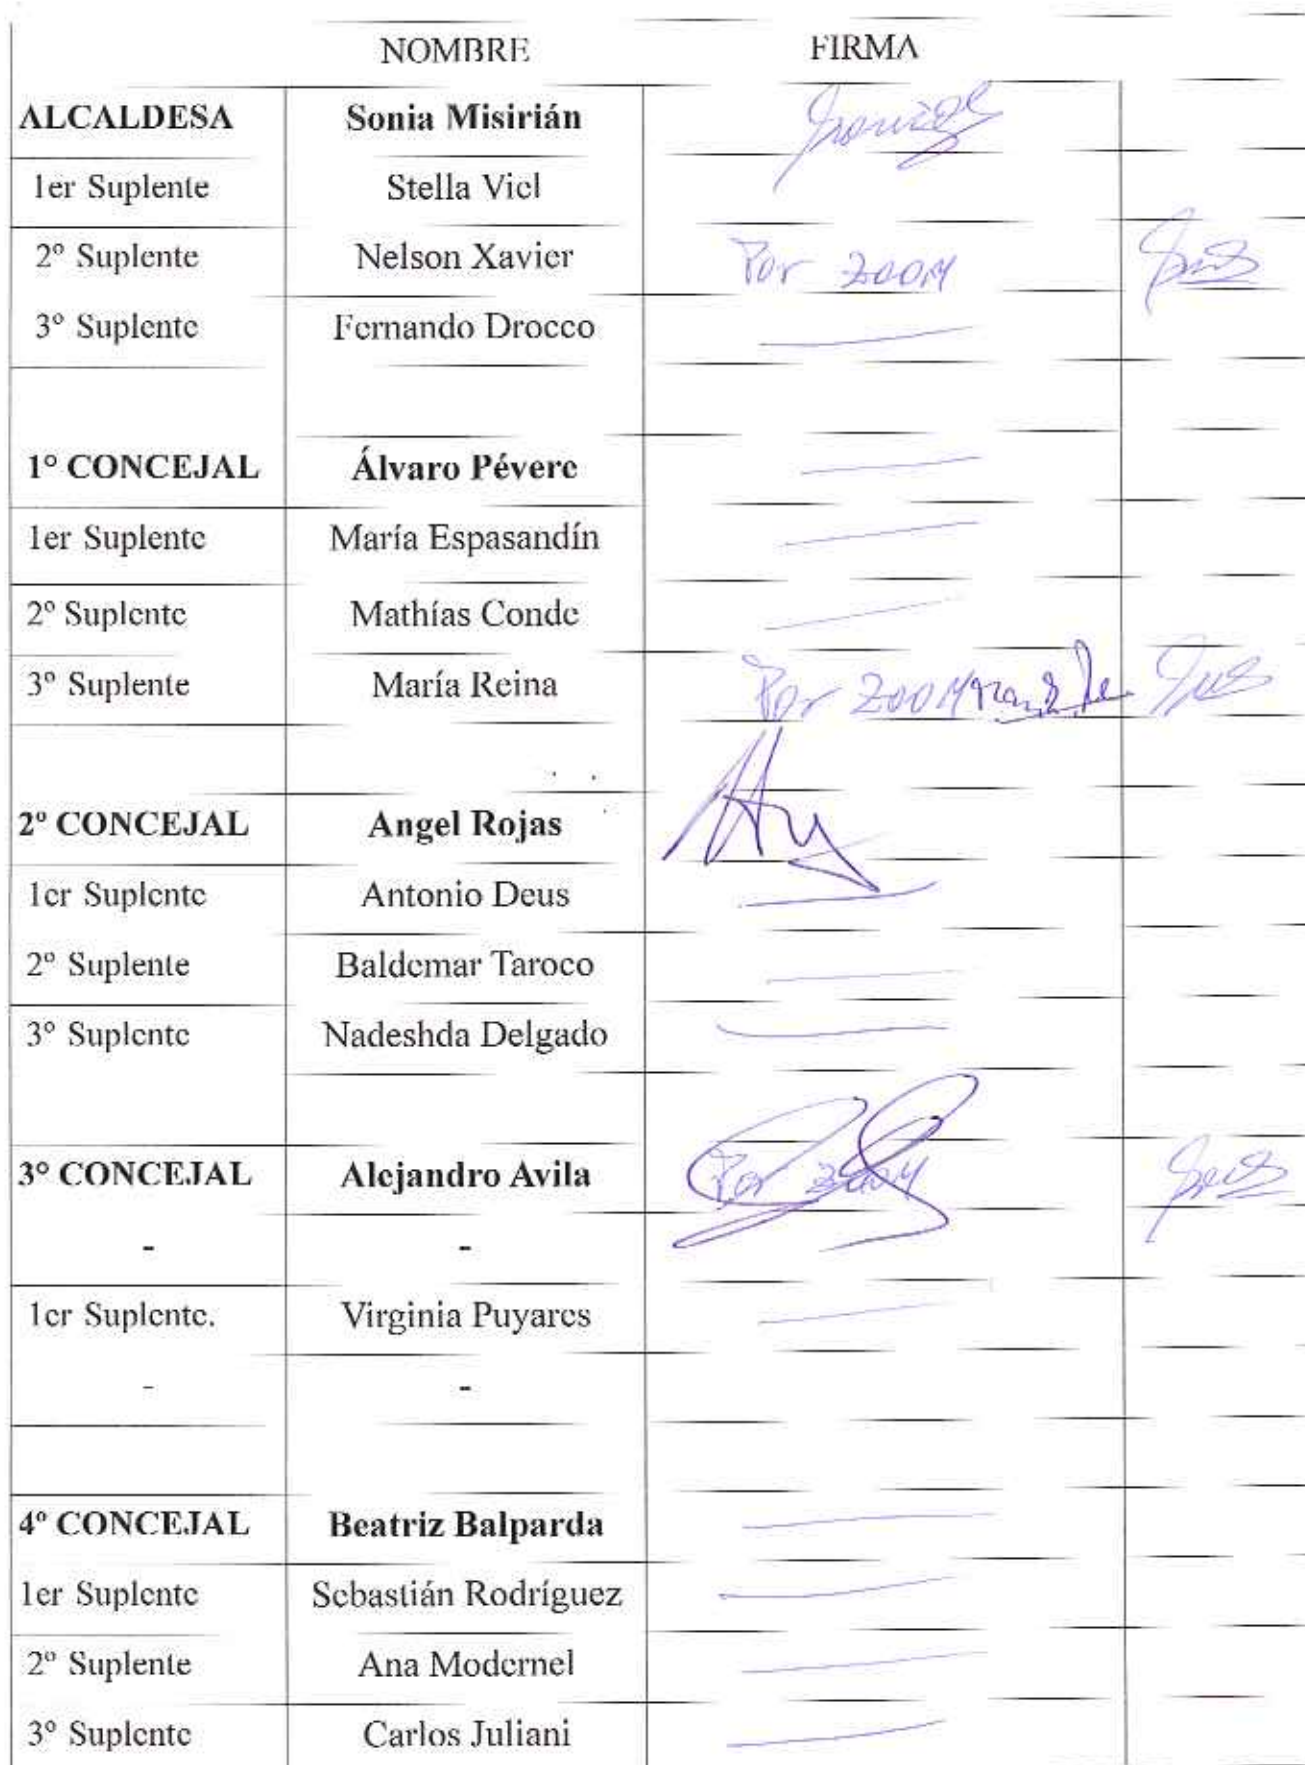 NOMBRE FIRMA
ALCALDESA Sonia Misirián
1er Suplente Stella Viel
2º Suplente Nelson Xavier Por ZOOM
3º Suplente Fernando Drocco
1º CONCEJAL Álvaro Pévere
1er Suplente María Espasandín
2º Suplente Mathías Conde
3º Suplente María Reina Por ZOOM
2º CONCEJAL Angel Rojas
1er Suplente Antonio Deus
2º Suplente Baldemar Taroco
3º Suplente Nadeshda Delgado
3º CONCEJAL Alejandro Avila Por ZOOM
- -
1er Suplente. Virginia Puyares
- -
4º CONCEJAL Beatriz Balparda
1er Suplente Sebastián Rodríguez
2º Suplente Ana Modernel
3º Suplente Carlos Juliani